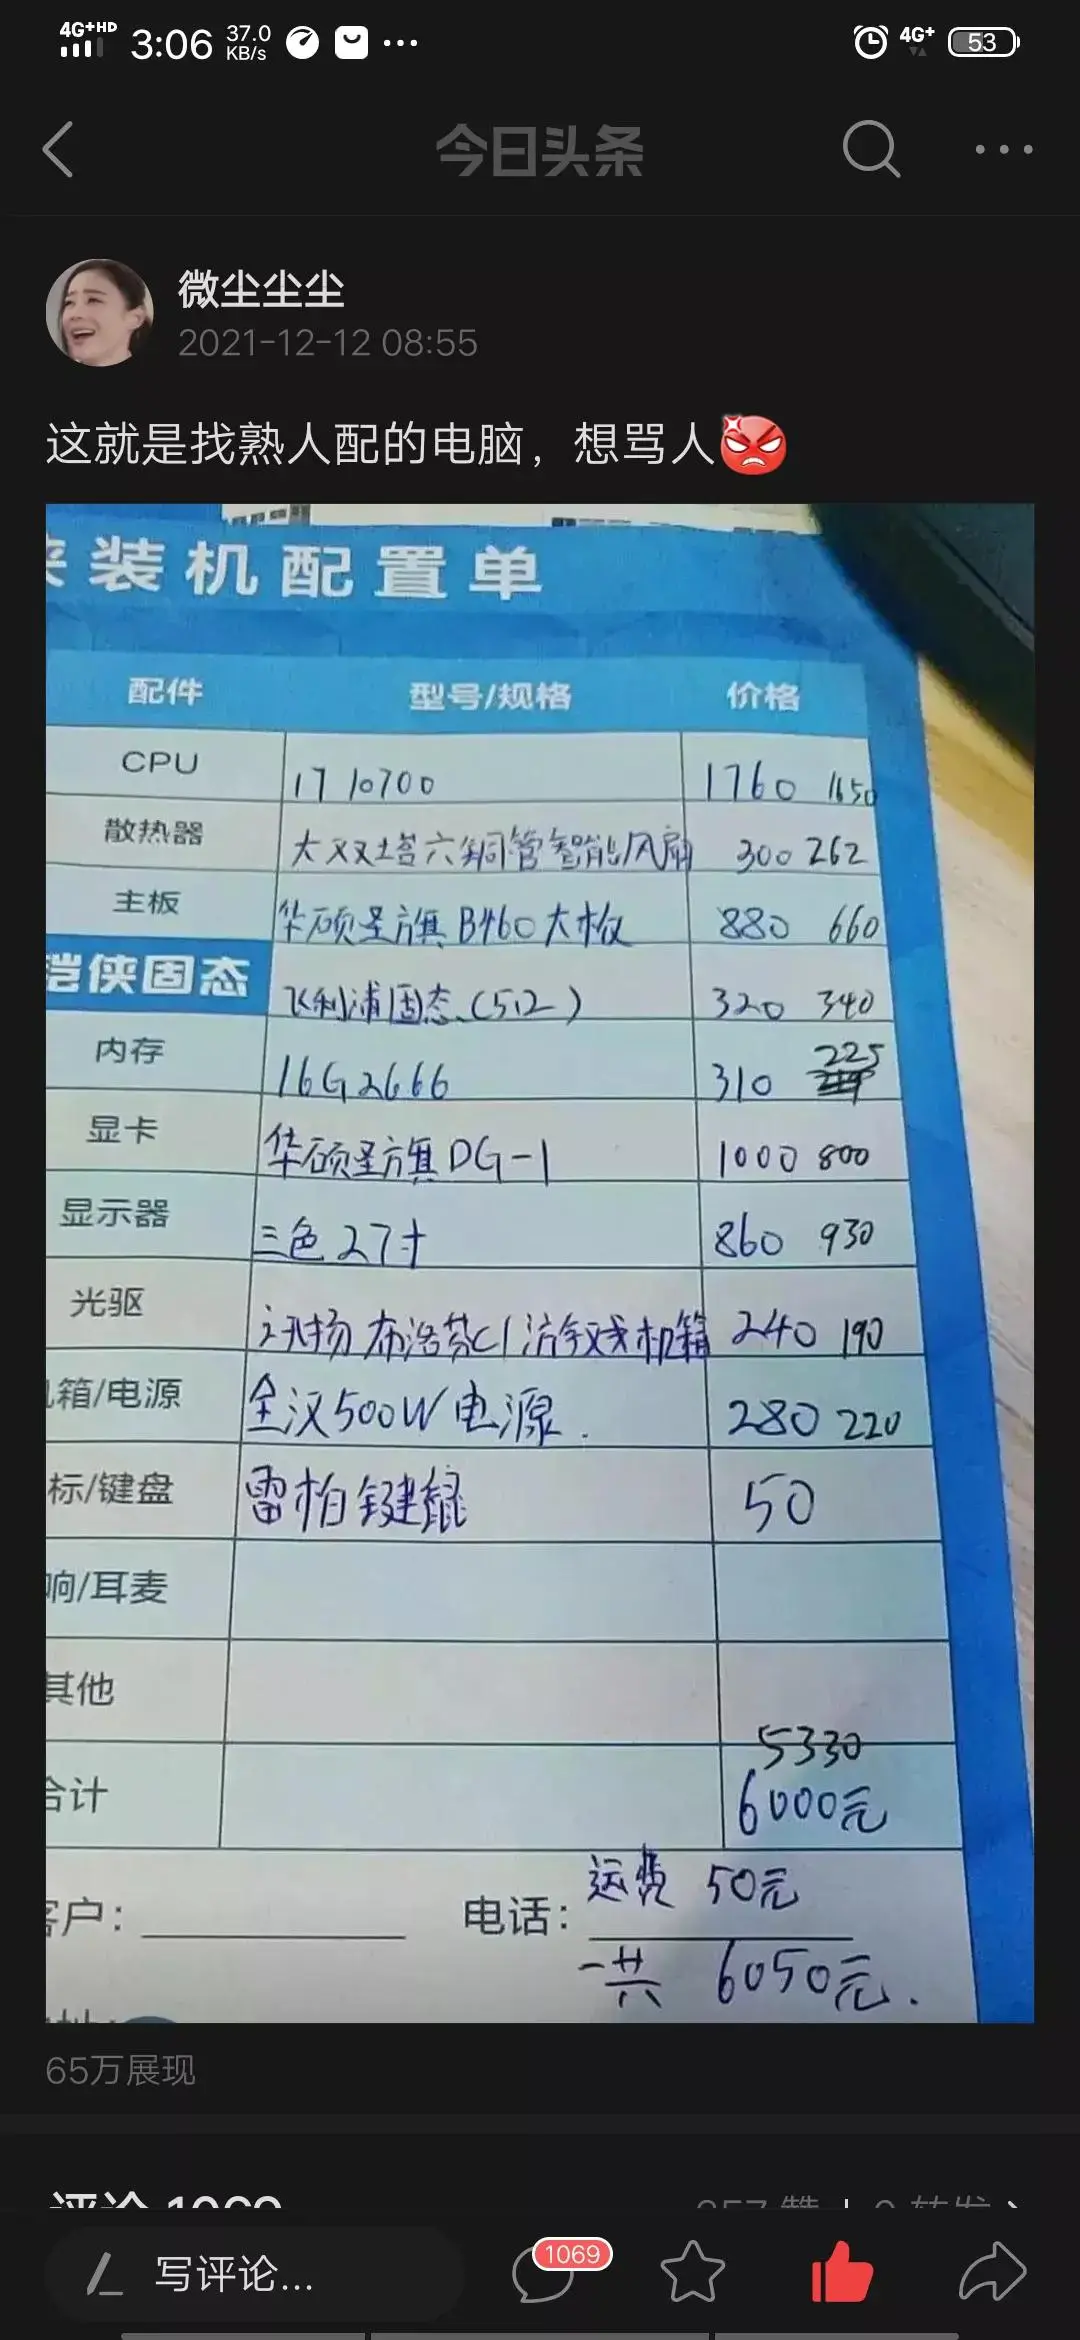 4G+HD 3:06 37.0 KB/s 4G+ 53
今日头条
微尘尘尘
2021-12-12 08:55
这就是找熟人配的电脑，想骂人
装机配置单
配件 型号/规格 价格
CPU i7 10700 1760 1650
散热器 大双塔六铜管智能风扇 300 262
主板 华硕圣旗B460大板 880 660
铠侠固态 飞利浦固态(512) 320 340
内存 16G2666 310 225
显卡 华硕圣旗DG-1 1000 800
显示器 三色27寸 860 930
光驱 布洛芬C1游戏机箱 240 190
箱/电源 全汉500W电源. 280 220
标/键盘 雷柏键鼠 50
响/耳麦
其他
5330
合计 6000元
运费 50元
客户: 电话:
一共 6050元.
65万展现
评论 1069 657 赞 0 转发
写评论... 1069